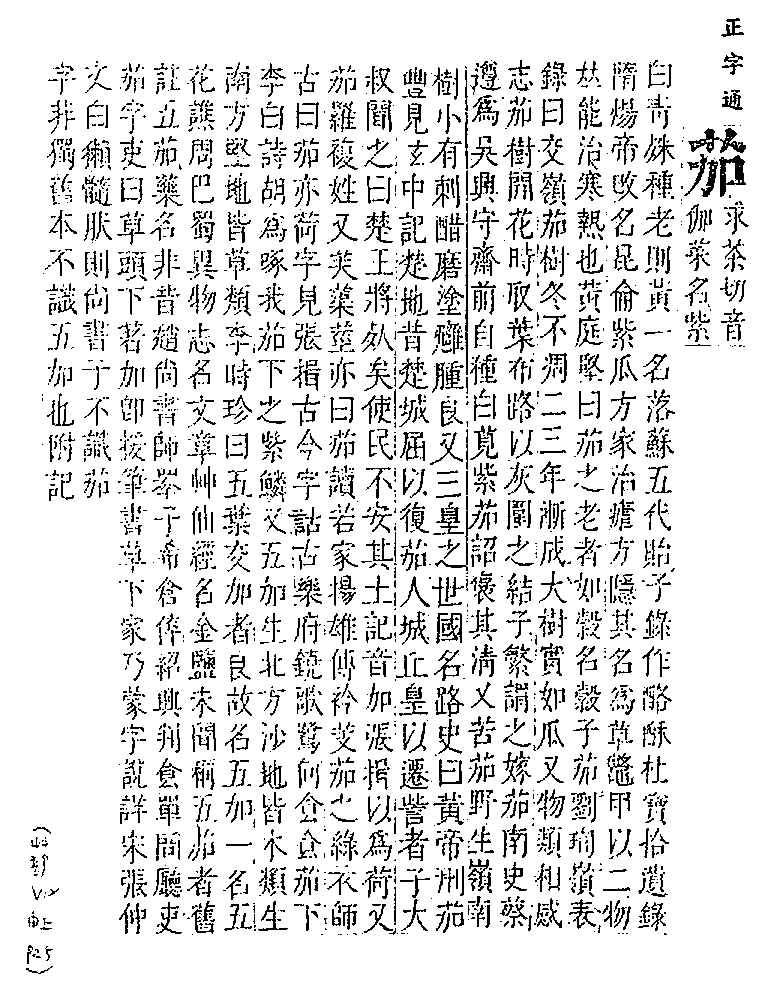 正字通
茄
求茶切音
伽菜名紫
白青殊種老則黃一名落蘇五代貽子錄作酪酥杜寶拾遺錄
隋煬帝改名昆侖紫瓜方家治瘧方隱其名爲草鼈甲以二物
能治寒熱也黃庭堅曰茄之老者如縠名縠子茄劉恂嶺表
錄曰交嶺茄樹冬不凋二三年漸成大樹實如瓜又物類相感
志茄樹開花時取葉布路以灰圍之結子繁謂之嫁茄南史蔡
遵爲吳興守齋前自種白莧紫茄詔褒其淸又苦茄野生嶺南
樹小有刺醋磨塗癰腫良又三皇之世國名路史曰黃帝刑茄
豐見玄中記楚地昔楚城屈以復茄人城丘皇以遷訾者子大
叔聞之曰楚王將死矣使民不安其土記音加張揖以爲荷又
茄羅複姓又芙蕖莖亦曰茄讀若家揚雄傳衿芰茄之綠衣師
古曰茄亦荷字見張揖古今字詁古樂府鐃歌鷺何食食茄下
李白詩胡爲啄我茄下之紫鱗又五加生北方沙地皆木類生
南方堅地皆草類李時珍曰五葉交加者良故名五加一名五
花譙周巴蜀異物志名文章艸仙經名金鹽未聞稱五茄者舊
註五茄藥名非昔趙尚書師睪子希倉倅紹興判食單問廳吏
茄字吏曰草頭下著加卽援筆書草下家乃蒙字訛詳宋張仲
文白獺髓狀則尚書子不識茄
字非獨舊本不識五加也附記